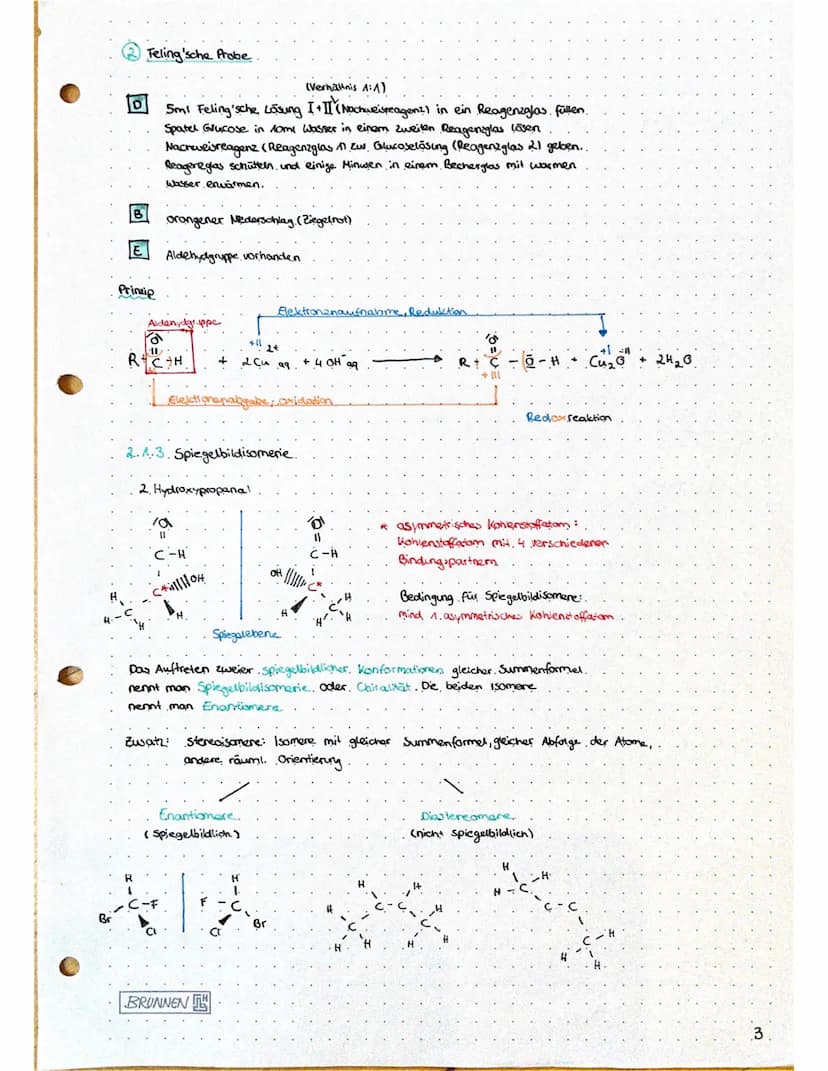 ② Feling'sche Probe
(Verhältnis 1:1)
D 5ml Feling'sche Lösung I+II (Nachweisreagenz) in ein Reagenzglas füllen.
Spatel Glucose in 10ml Wasser in einem zweiten Reagenzglas lösen
Nachweisreagenz (Reagenzglas 1) zur Glucoselösung (Reagenzglas 2) geben.
Reagenzglas schütteln und einige Minuten in einem Becherglas mit warmen
Wasser erwärmen.
B orangener Niederschlag (Ziegelrot)
E Aldehydgruppe vorhanden
Prinzip
Elektronenaufnahme, Reduktion
Aldehydgruppe
+II
+I -II
R-C-H + 2Cu²⁺aq + 4OH⁻aq → R-C-O-H + Cu₂O + 2H₂O
+III
Elektronenabgabe; Oxidation
Redoxreaktion
2.1.3. Spiegelbildisomerie
2. Hydroxypropanal
* asymmetrisches Kohenstoffatom:
Kohlenstoffatom mit 4 verschiedenen
Bindungspartnern
Bedingung für Spiegelbildisomere:
mind 1. asymmetrisches Kohlenstoffatom
O
O
C-H
C-H
C* OH
OH C*
H
H
H C H
H
C H
H
H
H
Spiegelebene
Das Auftreten zweier spiegelbildlicher Konformationen gleicher Summenformel
nennt man Spiegelbildisomerie oder Chiralität. Die beiden Isomere
nennt man Enantiomere
Zusatz: Stereoisomere: Isomere mit gleicher Summenformel, gleicher Abfolge der Atome,
andere räuml. Orientierung
Enantiomere
Diastereomere
(spiegelbildlich)
(nicht spiegelbildlich)
H
H
C-F
F-C
Br
Cl
Cl
Br
H
H
C-C
H
C
H
H
H
C
H
H
H
H
H-C
C-C
C-H
H
H
BRUNNEN
3